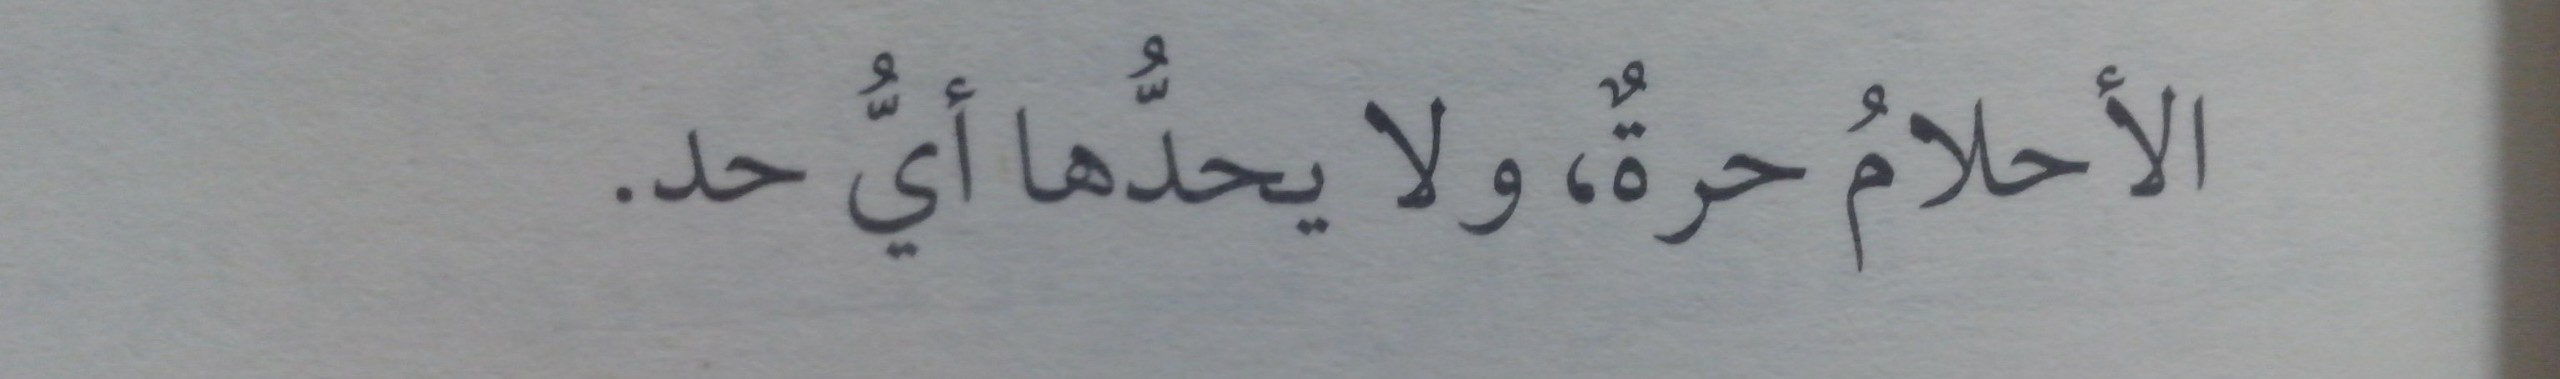 الأحلامُ حرةٌ، ولا يحدُّها أيُّ حد.